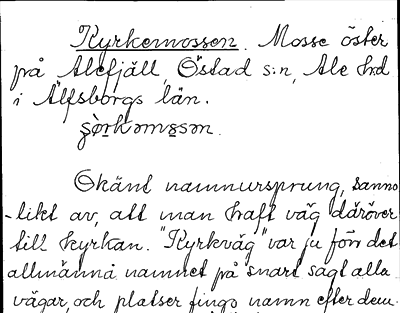 Kyrkemossen. Mosse öster
på Alefjäll, Östad s:n, Ale hd
i Älfsborgs län.
Okänt namnursprung, sanno
-likt av, att man haft väg däröver
till kyrkan. "Kyrkväg" var ju förr det
allmänna namnet på snart sagt alla
vägar, och platser fingo namn efter dem.